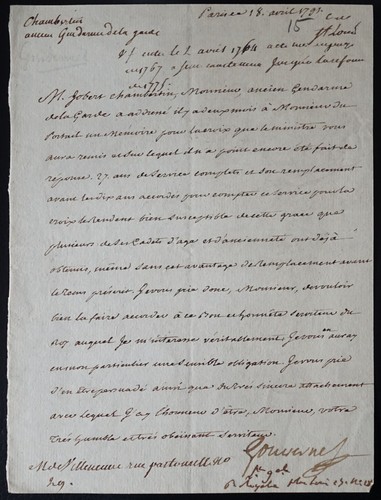 Chambertin
ancien Gendarme de la garde
Paris ce 18. avril 1791.
15
St Louis
il entre le 2 avril 1764 a été
en 1767 a fait jusque la refor
en 1775
M. Jobert Chambertin, Monsieur ancien Gendarme
de la Garde a adressé il y a deux mois à Monsieur du
Portail un Memoire pour la croix que le ministre vous
aura remis et sur lequel il n'a point encore été fait de
réponse. 27. ans de service complets et son remplacement
avant les dix ans accordés pour compter ce service pour la
croix le rendent bien susceptible de cette grace que
plusieurs de ses Cadets d'age et d'ancienneté ont dejà
obtenus, même sans cet avantage de Remplacement avant
le tems prescrit. Je vous prie donc, Monsieur, de vouloir
bien la faire accorder à ce bon et honnête serviteur du
Roy auquel Je m'interesse véritablement, Je vous en auray
en mon particulier une sensible obligation. Je vous prie
d'en être persuadé ainsi que du très sincere attachement
avec lequel J'ay l'honneur d'être, Monsieur, votre
très humble et très obéissant serviteur
Gouvernet
M de Villeneuve rue pastourelle No